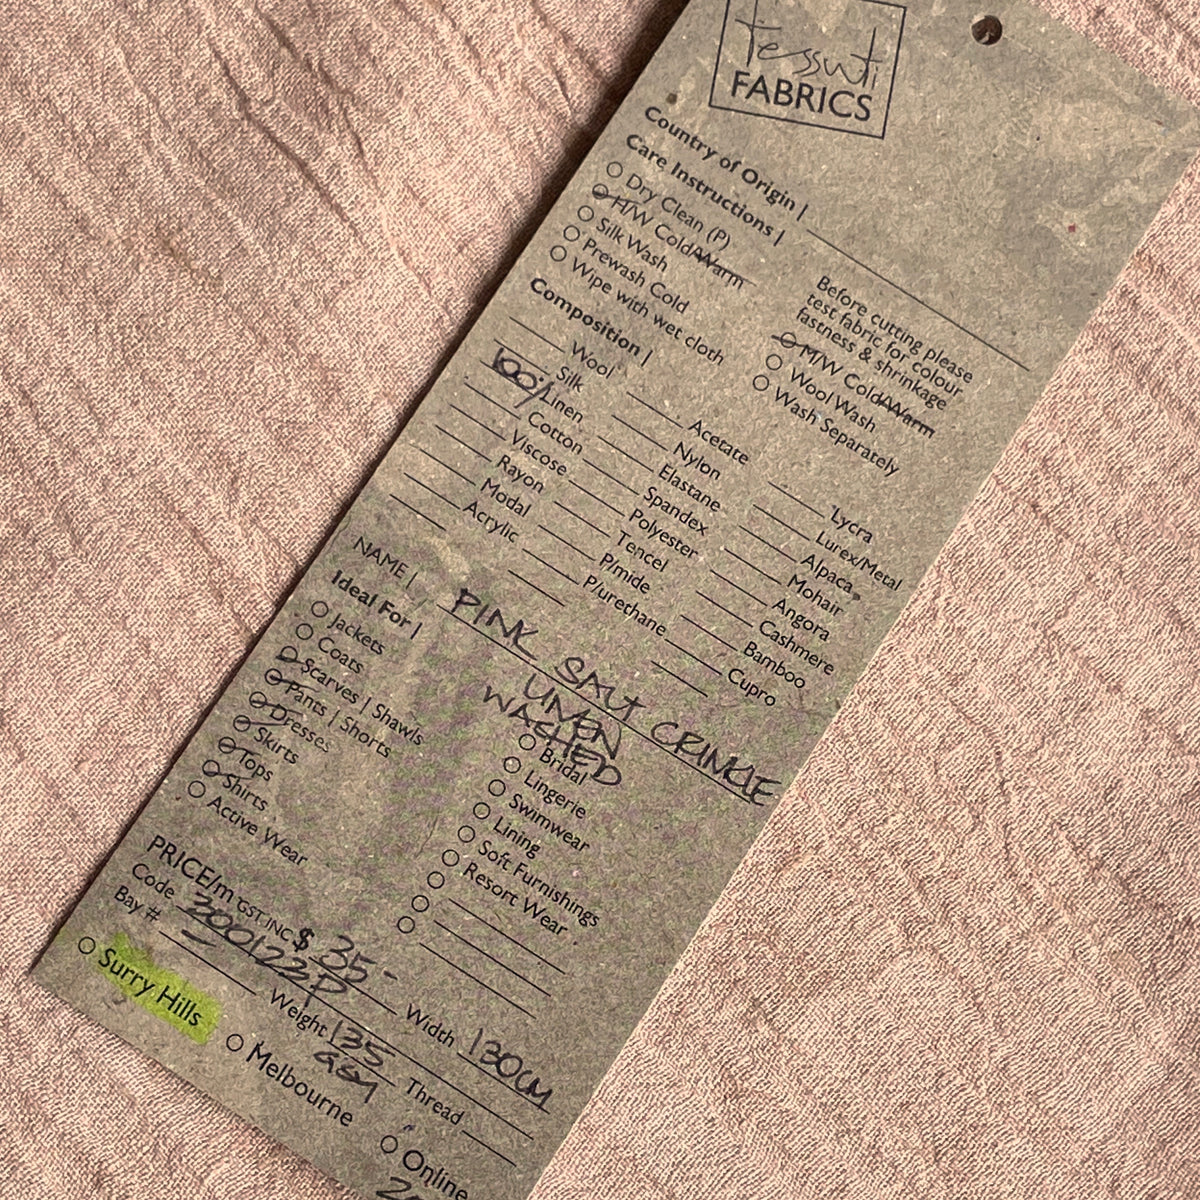 tessuti
FABRICS
Country of Origin |
Care Instructions |
Dry Clean (P)
H/W Cold/Warm
Silk Wash
Prewash Cold
Wipe with wet cloth
Before cutting please
test fabric for colour
fastness & shrinkage
M/W Cold/Warm
Wool Wash
Wash Separately
Composition |
Wool
Silk
100% Linen
Cotton
Viscose
Rayon
Modal
Acrylic
Acetate
Nylon
Elastane
Spandex
Polyester
Tencel
P/mide
P/urethane
Lycra
Lurex/Metal
Alpaca
Mohair
Angora
Cashmere
Bamboo
Cupro
NAME | PINK SALT CRINKLE
LINEN
WASHED
Ideal For |
Jackets
Coats
Scarves | Shawls
Pants | Shorts
Dresses
Skirts
Tops
Shirts
Active Wear
Bridal
Lingerie
Swimwear
Lining
Soft Furnishings
Resort Wear
PRICE/m GST.INC $ 35-
Code 300122P
Width 130CM
Bay #
Weight 135
GSM
Thread
Surry Hills
Melbourne
Online